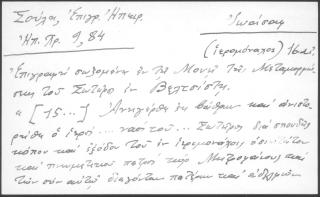 Σούλη, Ἐπιγρ. Ἠπειρ. Ἰωάσαφ
Ἠπ. Χρ. 9, 84 (ἱερομόναχος) 16 αἰ.
Ἐπιγραφὴ σωζομένη ἐν τῇ Μονῇ τῆς Μεταμορφώ-
σεως τοῦ Σωτῆρος ἐν Βελτσίστῃ.
« [15...] Ἀνηγέρθη ἐκ βάθρων καὶ ἀνιστο-
ρήθη ὁ ... ναὸς τοῦ ... Σωτῆρος διὰ σπουδῆς
κόπου καὶ ἐξόδου τοῦ ἐν ἱερομονάχοις ὁσιωτάτου
καὶ πνευματικοῦ πατρὸς κυρίου καὶ
τῶν σὺν αὐτῷ πατέρων καὶ ἀδελφῶν